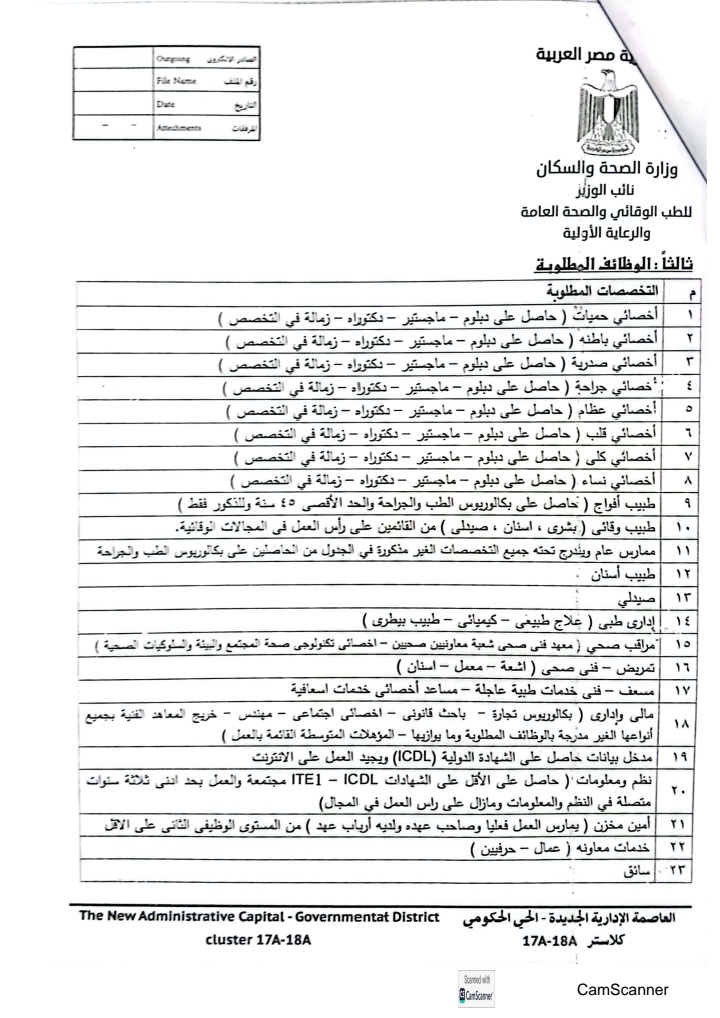 ية مصر العربية
الصادر الالكترونى Outgoing
رقم الملف File Name
التاريخ Date
المرفقات Attachments - -
وزارة الصحة والسكان
نائب الوزير
للطب الوقائي والصحة العامة
والرعاية الأولية
ثالثاً : الوظائف المطلوبة
م التخصصات المطلوبة
١ أخصائي حميات ( حاصل على دبلوم – ماجستير – دكتوراه – زمالة في التخصص )
٢ أخصائي باطنه ( حاصل على دبلوم – ماجستير – دكتوراه – زمالة في التخصص )
٣ أخصائي صدرية ( حاصل على دبلوم – ماجستير – دكتوراه – زمالة في التخصص )
٤ أخصائي جراحة ( حاصل على دبلوم – ماجستير – دكتوراه – زمالة في التخصص )
٥ أخصائي عظام ( حاصل على دبلوم – ماجستير – دكتوراه – زمالة في التخصص )
٦ أخصائي قلب ( حاصل على دبلوم – ماجستير – دكتوراه – زمالة في التخصص )
٧ أخصائي كلى ( حاصل على دبلوم – ماجستير – دكتوراه – زمالة في التخصص )
٨ أخصائي نساء ( حاصل على دبلوم – ماجستير – دكتوراه – زمالة في التخصص )
٩ طبيب أفواج ( حاصل على بكالوريوس الطب والجراحة والحد الأقصى ٤٥ سنة وللذكور فقط )
١٠ طبيب وقائى ( بشرى ، اسنان ، صيدلى ) من القائمين على رأس العمل فى المجالات الوقائية.
١١ ممارس عام ويندرج تحته جميع التخصصات الغير مذكورة في الجدول من الحاصلين على بكالوريوس الطب والجراحة
١٢ طبيب أسنان
١٣ صيدلي
١٤ إدارى طبى ( علاج طبيعى – كيميائى – طبيب بيطرى )
١٥ مراقب صحي ( معهد فنى صحى شعبة معاونيين صحيين – اخصائى تكنولوجى صحة المجتمع والبيئة والسلوكيات الصحية )
١٦ تمريض – فنى صحى ( اشعة – معمل – اسنان )
١٧ مسعف – فنى خدمات طبية عاجلة – مساعد أخصائي خدمات اسعافية
١٨ مالى وإدارى ( بكالوريوس تجارة – باحث قانونى – اخصائى اجتماعى – مهندس – خريج المعاهد الفنية بجميع
أنواعها الغير مدرجة بالوظائف المطلوبة وما يوازيها – المؤهلات المتوسطة القائمة بالعمل )
١٩ مدخل بيانات حاصل على الشهادة الدولية (ICDL) ويجيد العمل على الانترنت
٢٠ نظم ومعلومات ( حاصل على الأقل على الشهادات ITE1 – ICDL مجتمعة والعمل بحد ادنى ثلاثة سنوات
متصلة في النظم والمعلومات ومازال على راس العمل في المجال)
٢١ أمين مخزن ( يمارس العمل فعليا وصاحب عهده ولديه أرباب عهد ) من المستوى الوظيفى الثانى على الاقل
٢٢ خدمات معاونه ( عمال – حرفيين )
٢٣ سائق
العاصمة الإدارية الجديدة - الحي الحكومي
كلاستر 17A-18A
The New Administrative Capital - Governmentat District
cluster 17A-18A
Scanned with
CamScanner
CamScanner